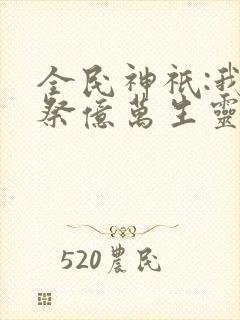 全民神祇:我
祭億萬生靈
520農民